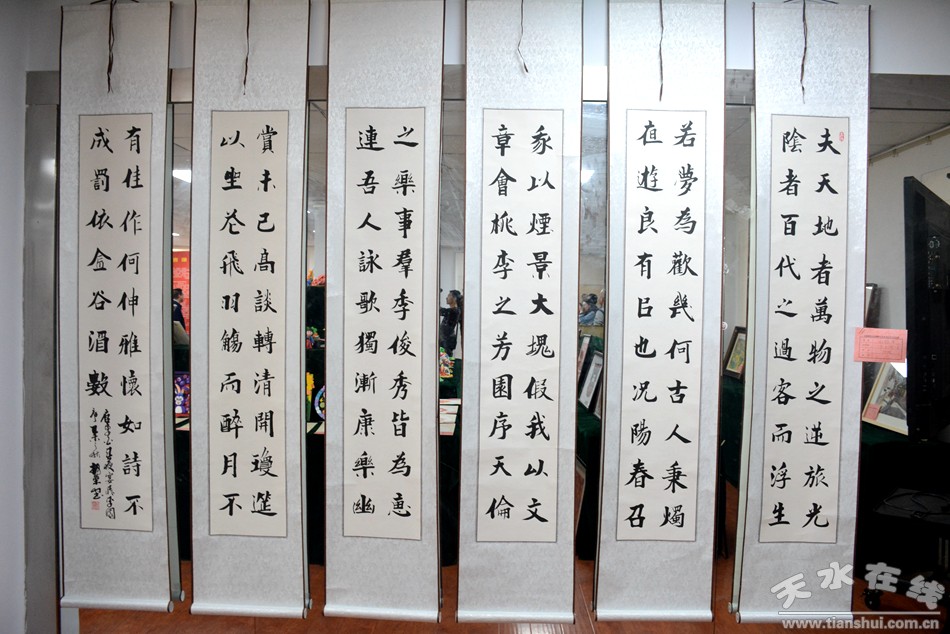 夫天地者萬物之逆旅光
陰者百代之過客而浮生
若夢為歡幾何古人秉燭
亱遊良有㠯也况陽春召
我以煙景大塊假我以文
章會桃李之芳園序天倫
之樂事羣季俊秀皆為惠
連吾人詠歌獨漸康樂幽
賞未已高談轉清開瓊筵
以坐花飛羽觴而醉月不
有佳作何伸雅懷如詩不
成罰依金谷酒數
天水在线
www.tianshui.com.cn